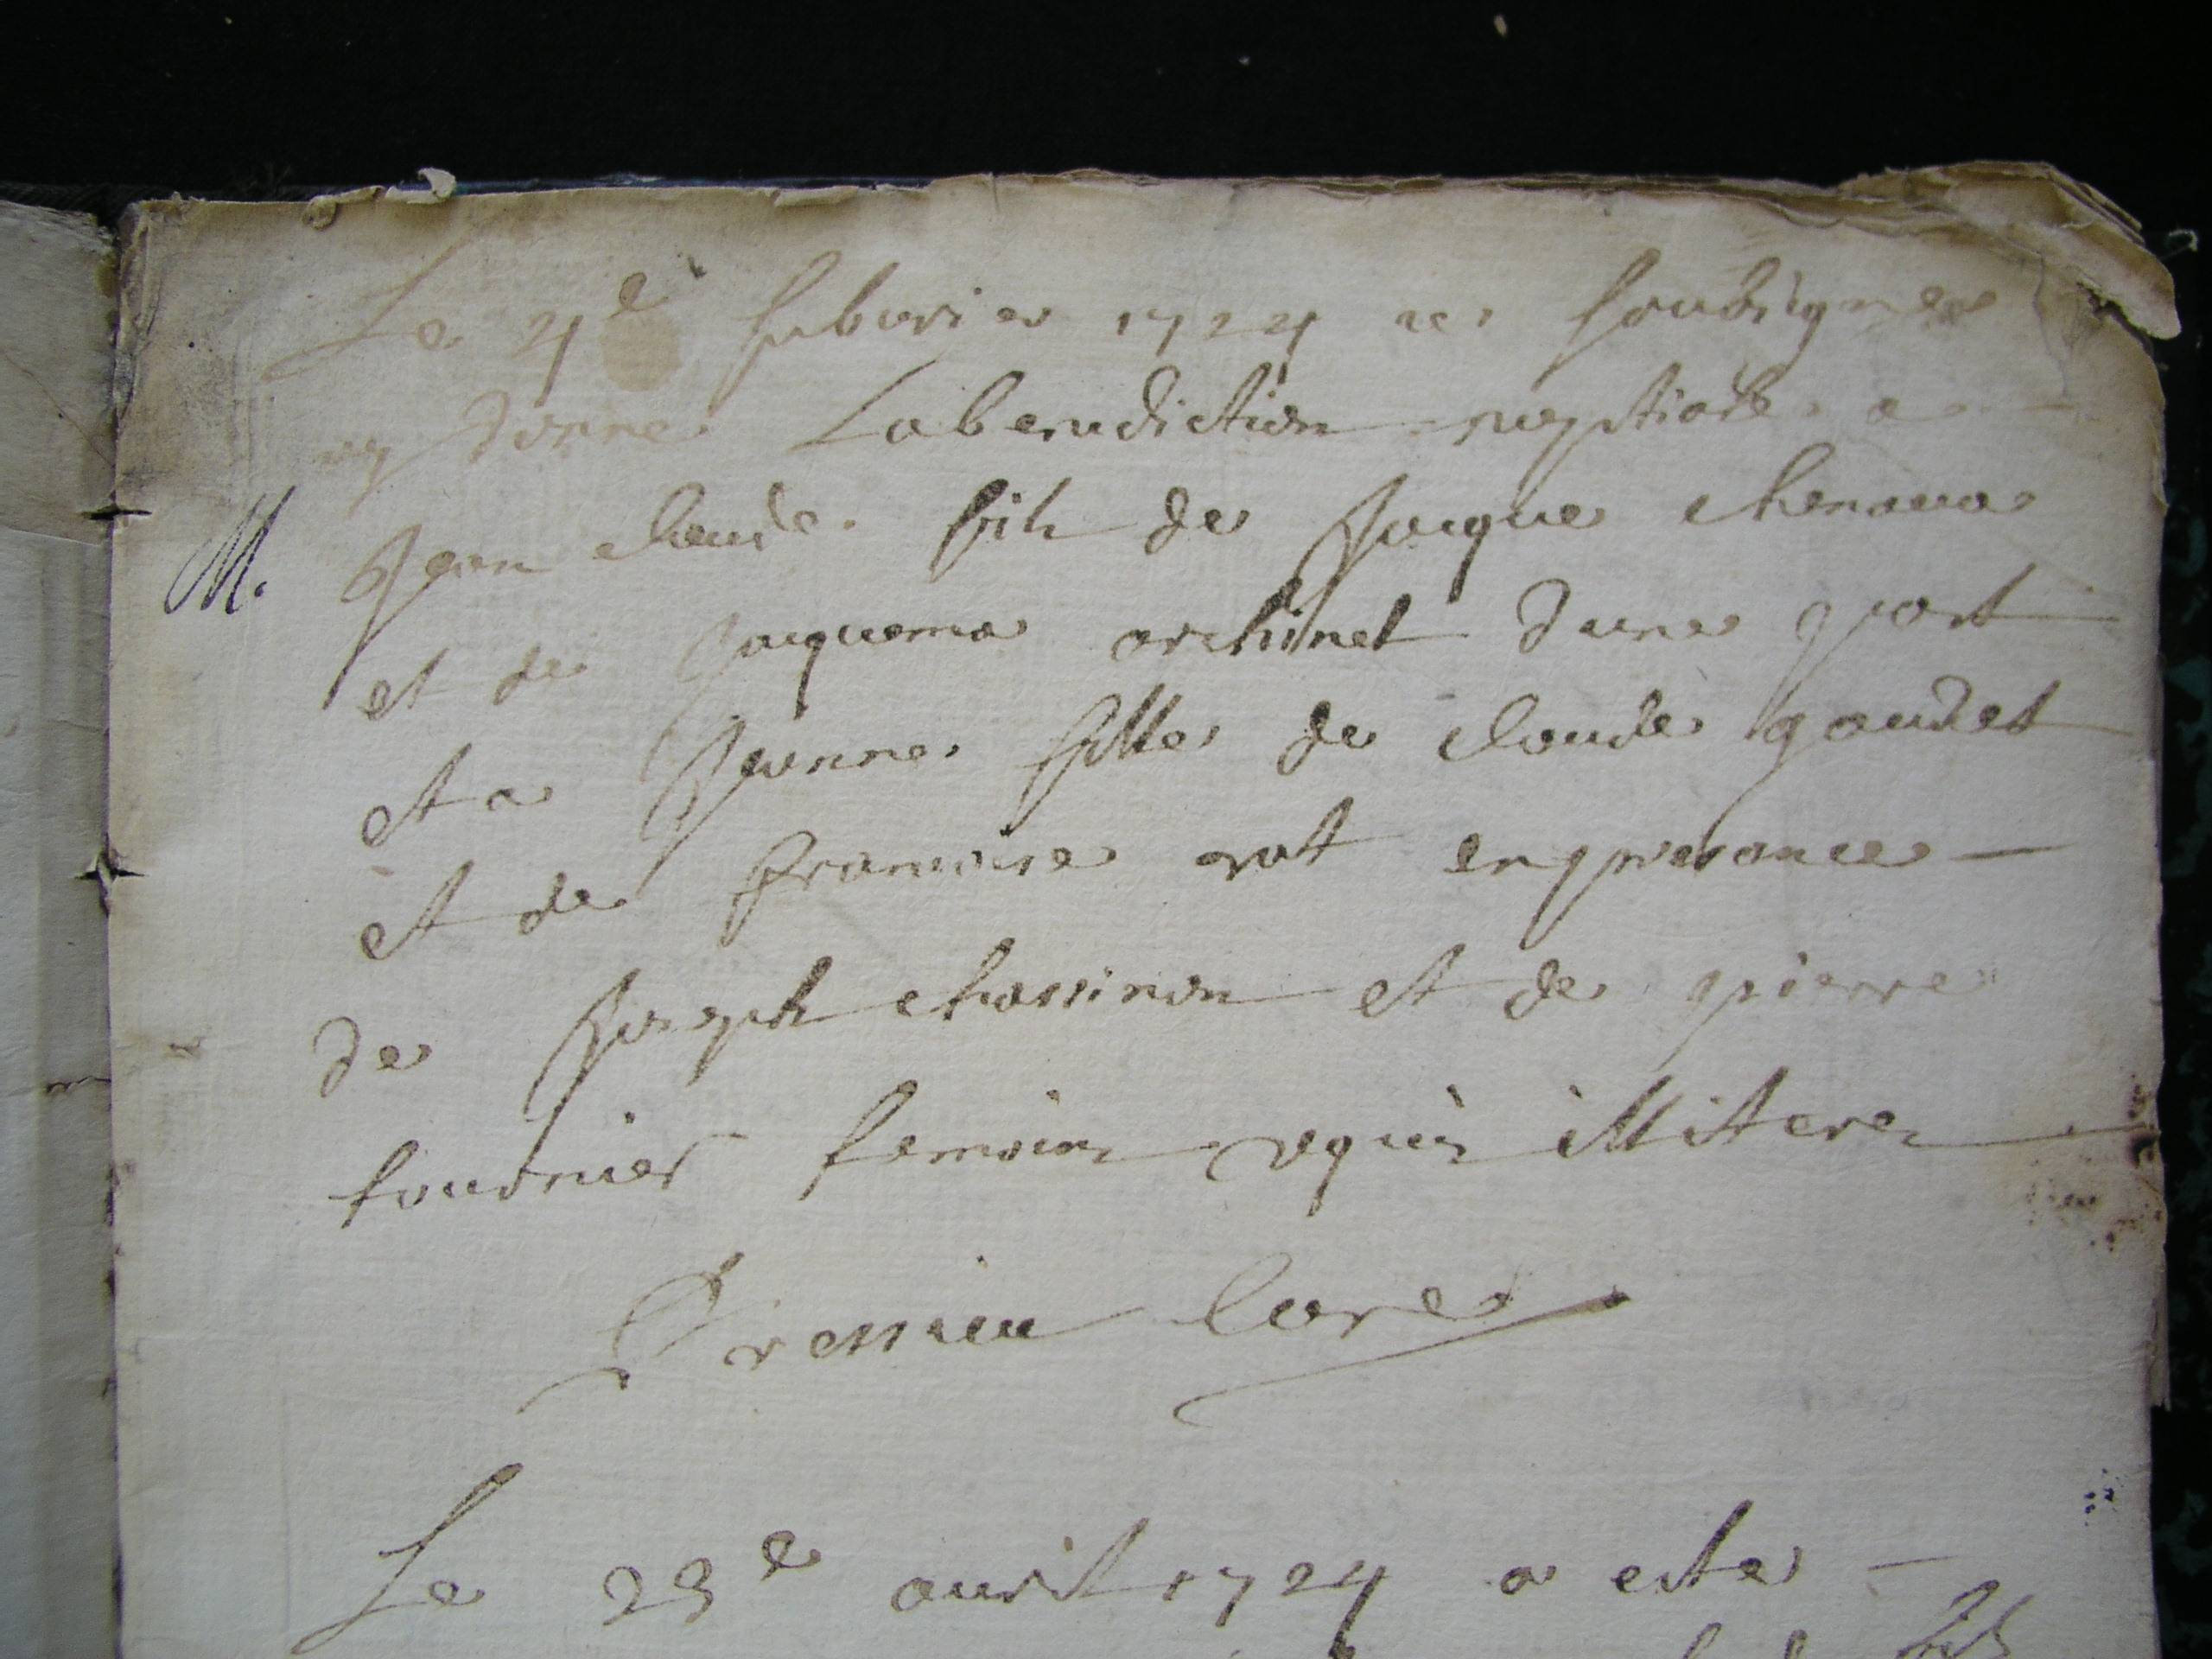 Le 4e febvrier 1724 ie soubsigne
ay donne La benediction nuptiale a
M. Jean claude fils de Jacque chenava
et de Jacquema archinet d'une part
et a Jeanne fille de claude gaudet
et de francoise rat en presance
de Joseph chassinon et de pierre
fournier temoins requis illiteres
Dressieu Cure
Le 23e auril 1724 a este